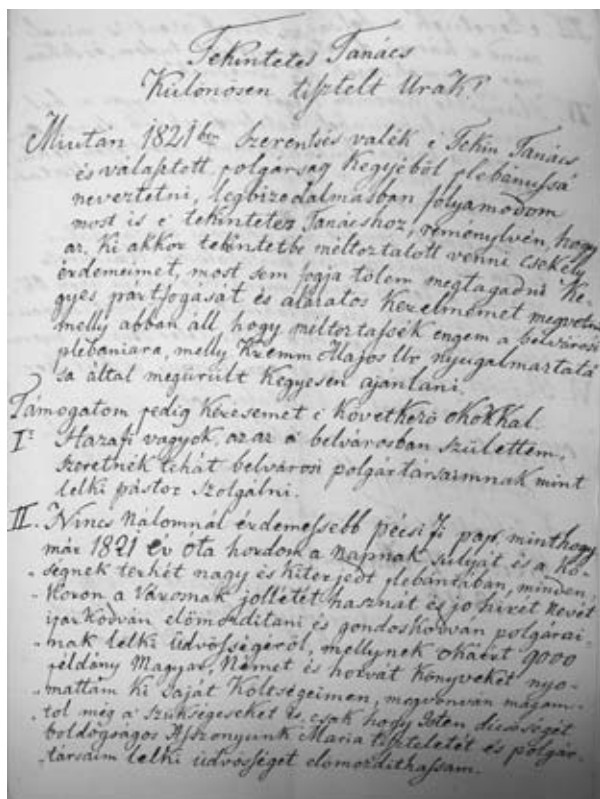 Tekintetes Tanács
Különösen tisztelt Urak!
Miután 1821ben szerentsés valék e' Tekin Tanács
és választott polgárság Kegyéből plebánussá
neveztetni, legbizodalmasban folyamodom
most is e' tekintetes Tanácshoz, reménylvén, hogy
az, ki akkor tekintetbe méltoztatott venni csekély
érdemeimet, most sem fogja tőlem megtagadni Ke-
gyes pártfogását és alázatos kérelmemet megvetni
melly abban áll, hogy méltoztassék engem a belvárosi
plebániára, melly Kremm Majos Ur nyugalmaztatá
sa által megürült Kegyesen ajánlani.
Támogatom pedig Kérésemet e' Következő okokkal.
I. Hazafi vagyok, azaz a' belvárosban születtem,
szeretnék tehát belvárosi polgártársaimnak mint
lelki pásztor szolgálni.
II. Nincs Nálomnál érdemessebb pécsi fi pap, minthogy
már 1821 év óta hordom a napnak sulyát és a hő-
ségnek terhét nagy és kiterjedt plebániában, minden
Koron a Városnak jóllétét hasznát és jó hirét nevét
iparkodván előmozditani és gondoskodván polgárai-
nak lelki üdvösségéről, mellynek okáért 9000
példány Magyar, Német és horvát Könyveket nyo-
mattam ki saját Költségeimen, megvonván magam-
tol még a szükségeseket is, csak hogy Isten dicsőségét
boldogságos Asszonyunk Maria tiszteletét és polgár-
társaim lelki üdvösségét előmozdithassam.